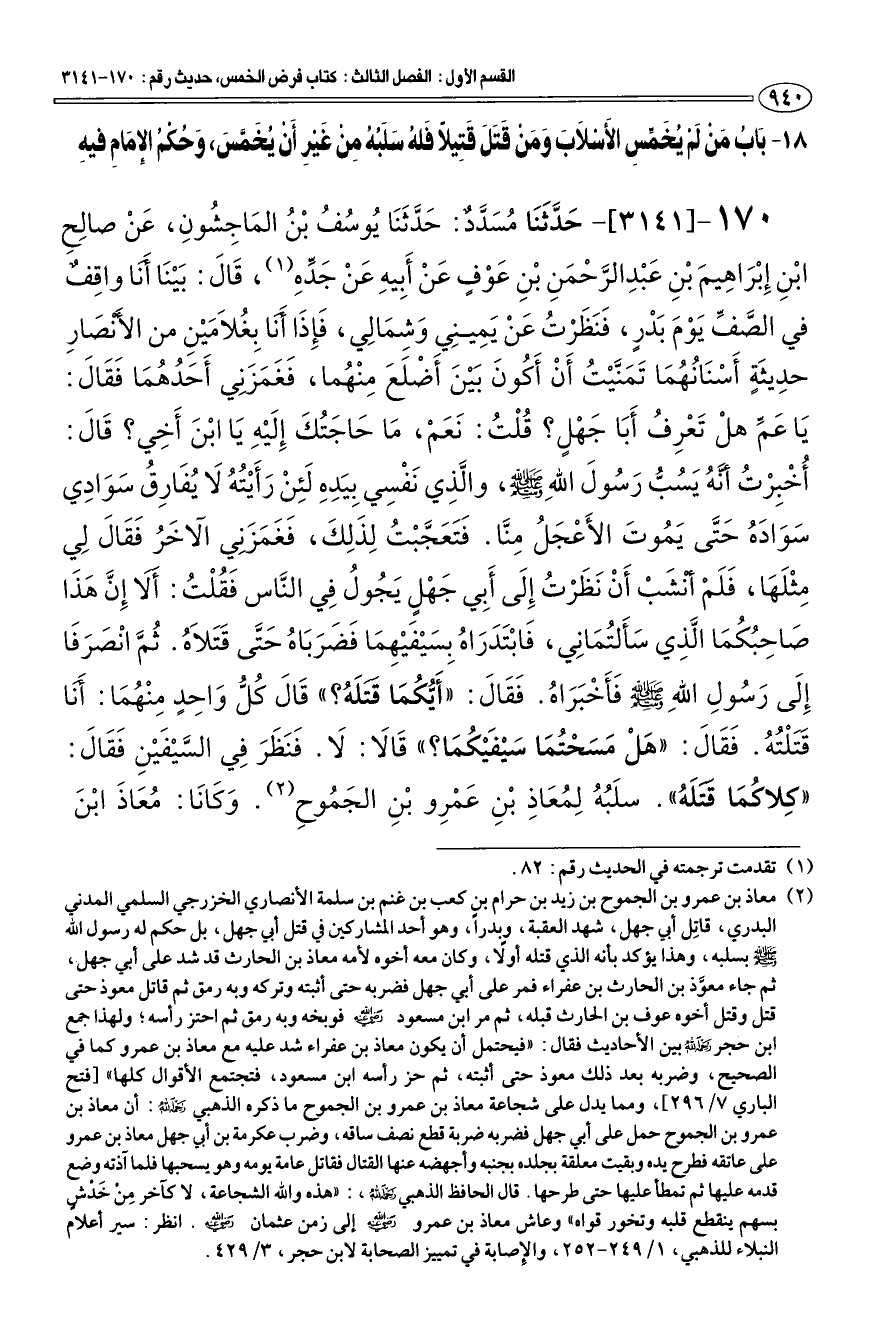 القسم الأول: الفصل الثالث: كتاب فرض الخمس، حديث رقم: ١٧٠-٣١٤١
٩٤٠
١٨- بَابُ مَنْ لَمْ يُخَمِّسِ الأَسْلَابَ وَمَنْ قَتَلَ قَتِيلاً فَلهُ سَلَبُهُ مِنْ غَيْرِ أَنْ يُخَمَّسَ، وَحُكْمُ الإِمَامِ فيهِ
١٧٠-[٣١٤١]- حَدَّثَنَا مُسَدَّدٌ: حَدَّثَنَا يُوسُفُ بْنُ المَاجِشُونِ، عَنْ صالِحِ
ابْنِ إِبْرَاهِيمَ بْنِ عَبْدِالرَّحْمَنِ بْنِ عَوْفٍ عَنْ أَبِيهِ عَنْ جَدِّهِ(١)، قَالَ: بَيْنَا أَنَا واقِفٌ
في الصَّفِّ يَوْمَ بَدْرٍ، فَنَظَرْتُ عَنْ يَمِينِي وَشِمَالِي، فَإِذَا أَنَا بِغُلاَمَيْنِ من الأَنْصَارِ
حَدِيثَةٍ أَسْنَانُهُمَا تَمَنَّيْتُ أَنْ أَكُونَ بَيْنَ أَضْلَعَ مِنْهُما، فَغَمَزَنِي أَحَدُهُمَا فَقَالَ:
يَا عَمِّ هلْ تَعْرِفُ أَبَا جَهْلٍ؟ قُلْتُ: نَعَمْ، مَا حَاجَتُكَ إِلَيْهِ يَا ابْنَ أَخِي؟ قَالَ:
أُخْبِرْتُ أَنَّهُ يَسُبُّ رَسُولَ اللهِ ﷺ، والَّذِي نَفْسِي بِيَدِهِ لَئِنْ رَأَيْتُهُ لَا يُفَارِقُ سَوَادِي
سَوَادَهُ حَتَّى يَمُوتَ الأَعْجَلُ مِنَّا. فَتَعَجَّبْتُ لِذَلِكَ، فَغَمَزَنِي الآخَرُ فَقَالَ لِي
مِثْلَهَا، فَلَمْ أَنْشَبْ أَنْ نَظَرْتُ إِلَى أَبِي جَهْلٍ يَجُولُ فِي النَّاس فَقُلْتُ: أَلَا إِنَّ هَذَا
صَاحِبُكُمَا الَّذِي سَأَلتُمَانِي، فَابْتَدَرَاهُ بِسَيْفَيْهِمَا فَضَرَبَاهُ حَتَّى قَتَلاَهُ. ثُمَّ انْصَرَفَا
إِلَى رَسُولِ اللهِ ﷺ فَأَخْبَرَاهُ. فَقَالَ: «أَيُّكُمَا قَتَلَهُ؟» قَالَ كُلُّ وَاحِدٍ مِنْهُمَا: أَنَا
قَتَلْتُهُ. فَقَالَ: «هَلْ مَسَحْتُمَا سَيْفَيْكُمَا؟» قَالَا: لَا. فَنَظَرَ فِي السَّيْفَيْنِ فَقَالَ:
«كِلاكُمَا قَتَلَهُ». سلَبُهُ لِمُعَاذِ بْنِ عَمْرِو بْنِ الجَمُوحِ(٢). وَكَانَا: مُعَاذَ ابْنَ
(١) تقدمت ترجمته في الحديث رقم: ٨٢.
(٢) معاذ بن عمرو بن الجموح بن زيد بن حرام بن كعب بن غنم بن سلمة الأنصاري الخزرجي السلمي المدني
البدري، قاتِل أبي جهل، شهد العقبة، وبدراً، وهو أحد المشاركين في قتل أبي جهل، بل حكم له رسول الله
ﷺ بسلبه، وهذا يؤكد بأنه الذي قتله أولًا، وكان معه أخوه لأمه معاذ بن الحارث قد شد على أبي جهل،
ثم جاء معوِّذ بن الحارث بن عفراء فمر على أبي جهل فضربه حتى أثبته وتركه وبه رمق ثم قاتل معوذ حتى
قتل وقتل أخوه عوف بن الحارث قبله، ثم مر ابن مسعود رضي الله عنه فوبخه وبه رمق ثم احتز رأسه؛ ولهذا جمع
ابن حجر رحمه الله بين الأحاديث فقال: «فيحتمل أن يكون معاذ بن عفراء شد عليه مع معاذ بن عمرو كما في
الصحيح، وضربه بعد ذلك معوذ حتى أثبته، ثم حز رأسه ابن مسعود، فتجتمع الأقوال كلها» [فتح
الباري ٧/ ٢٩٦]، ومما يدل على شجاعة معاذ بن عمرو بن الجموح ما ذكره الذهبي رحمه الله: أن معاذ بن
عمرو بن الجموح حمل على أبي جهل فضربه ضربة قطع نصف ساقه، وضرب عكرمة بن أبي جهل معاذ بن عمرو
على عاتقه فطرح يده وبقيت معلقة بجلده بجنبه وأجهضه عنها القتال فقاتل عامة يومه وهو يسحبها فلما آذته وضع
قدمه عليها ثم تمطأ عليها حتى طرحها. قال الحافظ الذهبي رحمه الله،: «هذه والله الشجاعة، لا كآخر مِنْ خَدْشٍ
بسهم ينقطع قلبه وتخور قواه» وعاش معاذ بن عمرو رضي الله عنه إلى زمن عثمان رضي الله عنه. انظر: سير أعلام
النبلاء للذهبي، ١/ ٢٤٩-٢٥٢، والإصابة في تمييز الصحابة لابن حجر، ٣/ ٤٢٩.